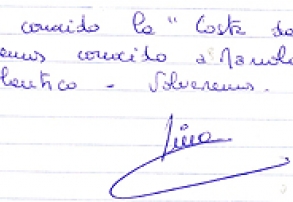 conocido la "Costa do
emos conocido a Manolo
lantico - Volveremos.
Lina